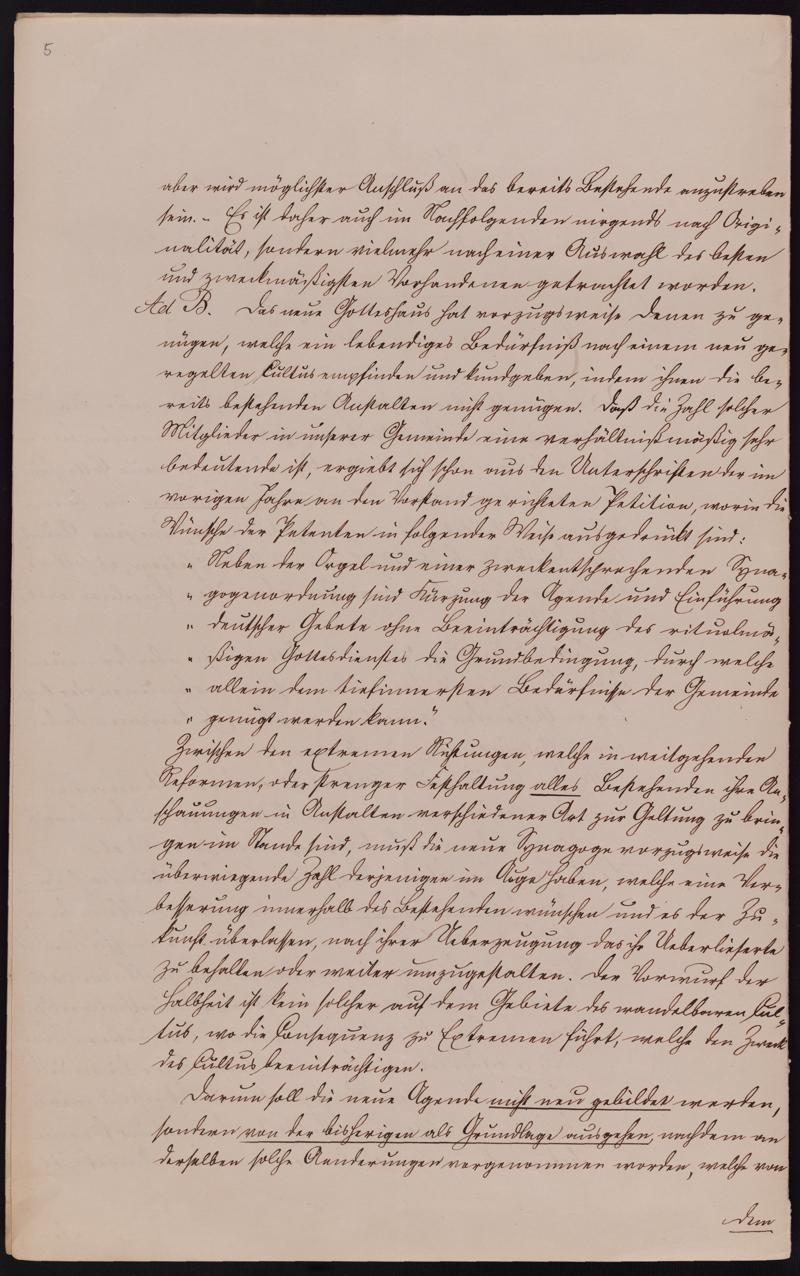 5
aber wird möglichster Anschluß an das bereits Bestehende anzustreben
sein. – Es ist daher auch im Nachfolgenden nirgends nach Origi-
nalität, sondern vielmehr nach einer Auswahl des besten
und zweckmäßigsten Vorhandenen getrachtet worden.
Ad B. Das neue Gotteshaus hat vorzugsweise Denen zu ge-
nügen, welche ein lebendiges Bedürfniß nach einem neu ge-
regelten Cultus empfinden und kundgeben, indem ihnen die be-
reits bestehenden Anstalten nicht genügen. Daß die Zahl solcher
Mitglieder in unserer Gemeinde eine verhältnißmäßig sehr
bedeutende ist, ergiebt sich schon aus den Unterschriften der im
vorigen Jahre an den Vorstand gerichteten Petition, worin die
Wünsche der Petenten in folgender Weise ausgedrückt sind:
„ Neben der Orgel und einer zweckentsprechenden Syna-
„ gogenordnung sind Kürzung der Agende und Einführung
„ deutscher Gebete ohne Beeinträchtigung des ritualmä-
„ ßigen Gottesdienstes die Grundbedingung, durch welche
„ allein dem tiefinnersten Bedürfnisse der Gemeinde
„ genügt werden kann."
Zwischen den extremen Richtungen, welche in weitgehenden
Reformen, oder strenger Festhaltung alles Bestehenden ihre An-
schauungen in Anstalten verschiedener Art zur Geltung zu brin-
gen im Stande sind, muß die neue Synagoge vorzugsweise die
überwiegende Zahl derjenigen im Auge haben, welche eine Ver-
besserung innerhalb des Bestehenden wünschen und es der Zu-
kunft überlassen, nach ihrer Ueberzeugung das ihr Ueberlieferte
zu behalten oder weiter umzugestalten. Der Vorwurf der
Halbheit ist kein solcher auf dem Gebiete des wandelbaren Cul-
tus, wo die Consequenz zu Extremen führt, welche den Zweck
des Cultus beeinträchtigen.
Darum soll die neue Agende nicht neu gebildet werden,
sondern von der bisherigen als Grundlage ausgehen, nachdem an
derselben solche Aenderungen vorgenommen worden, welche von
dem